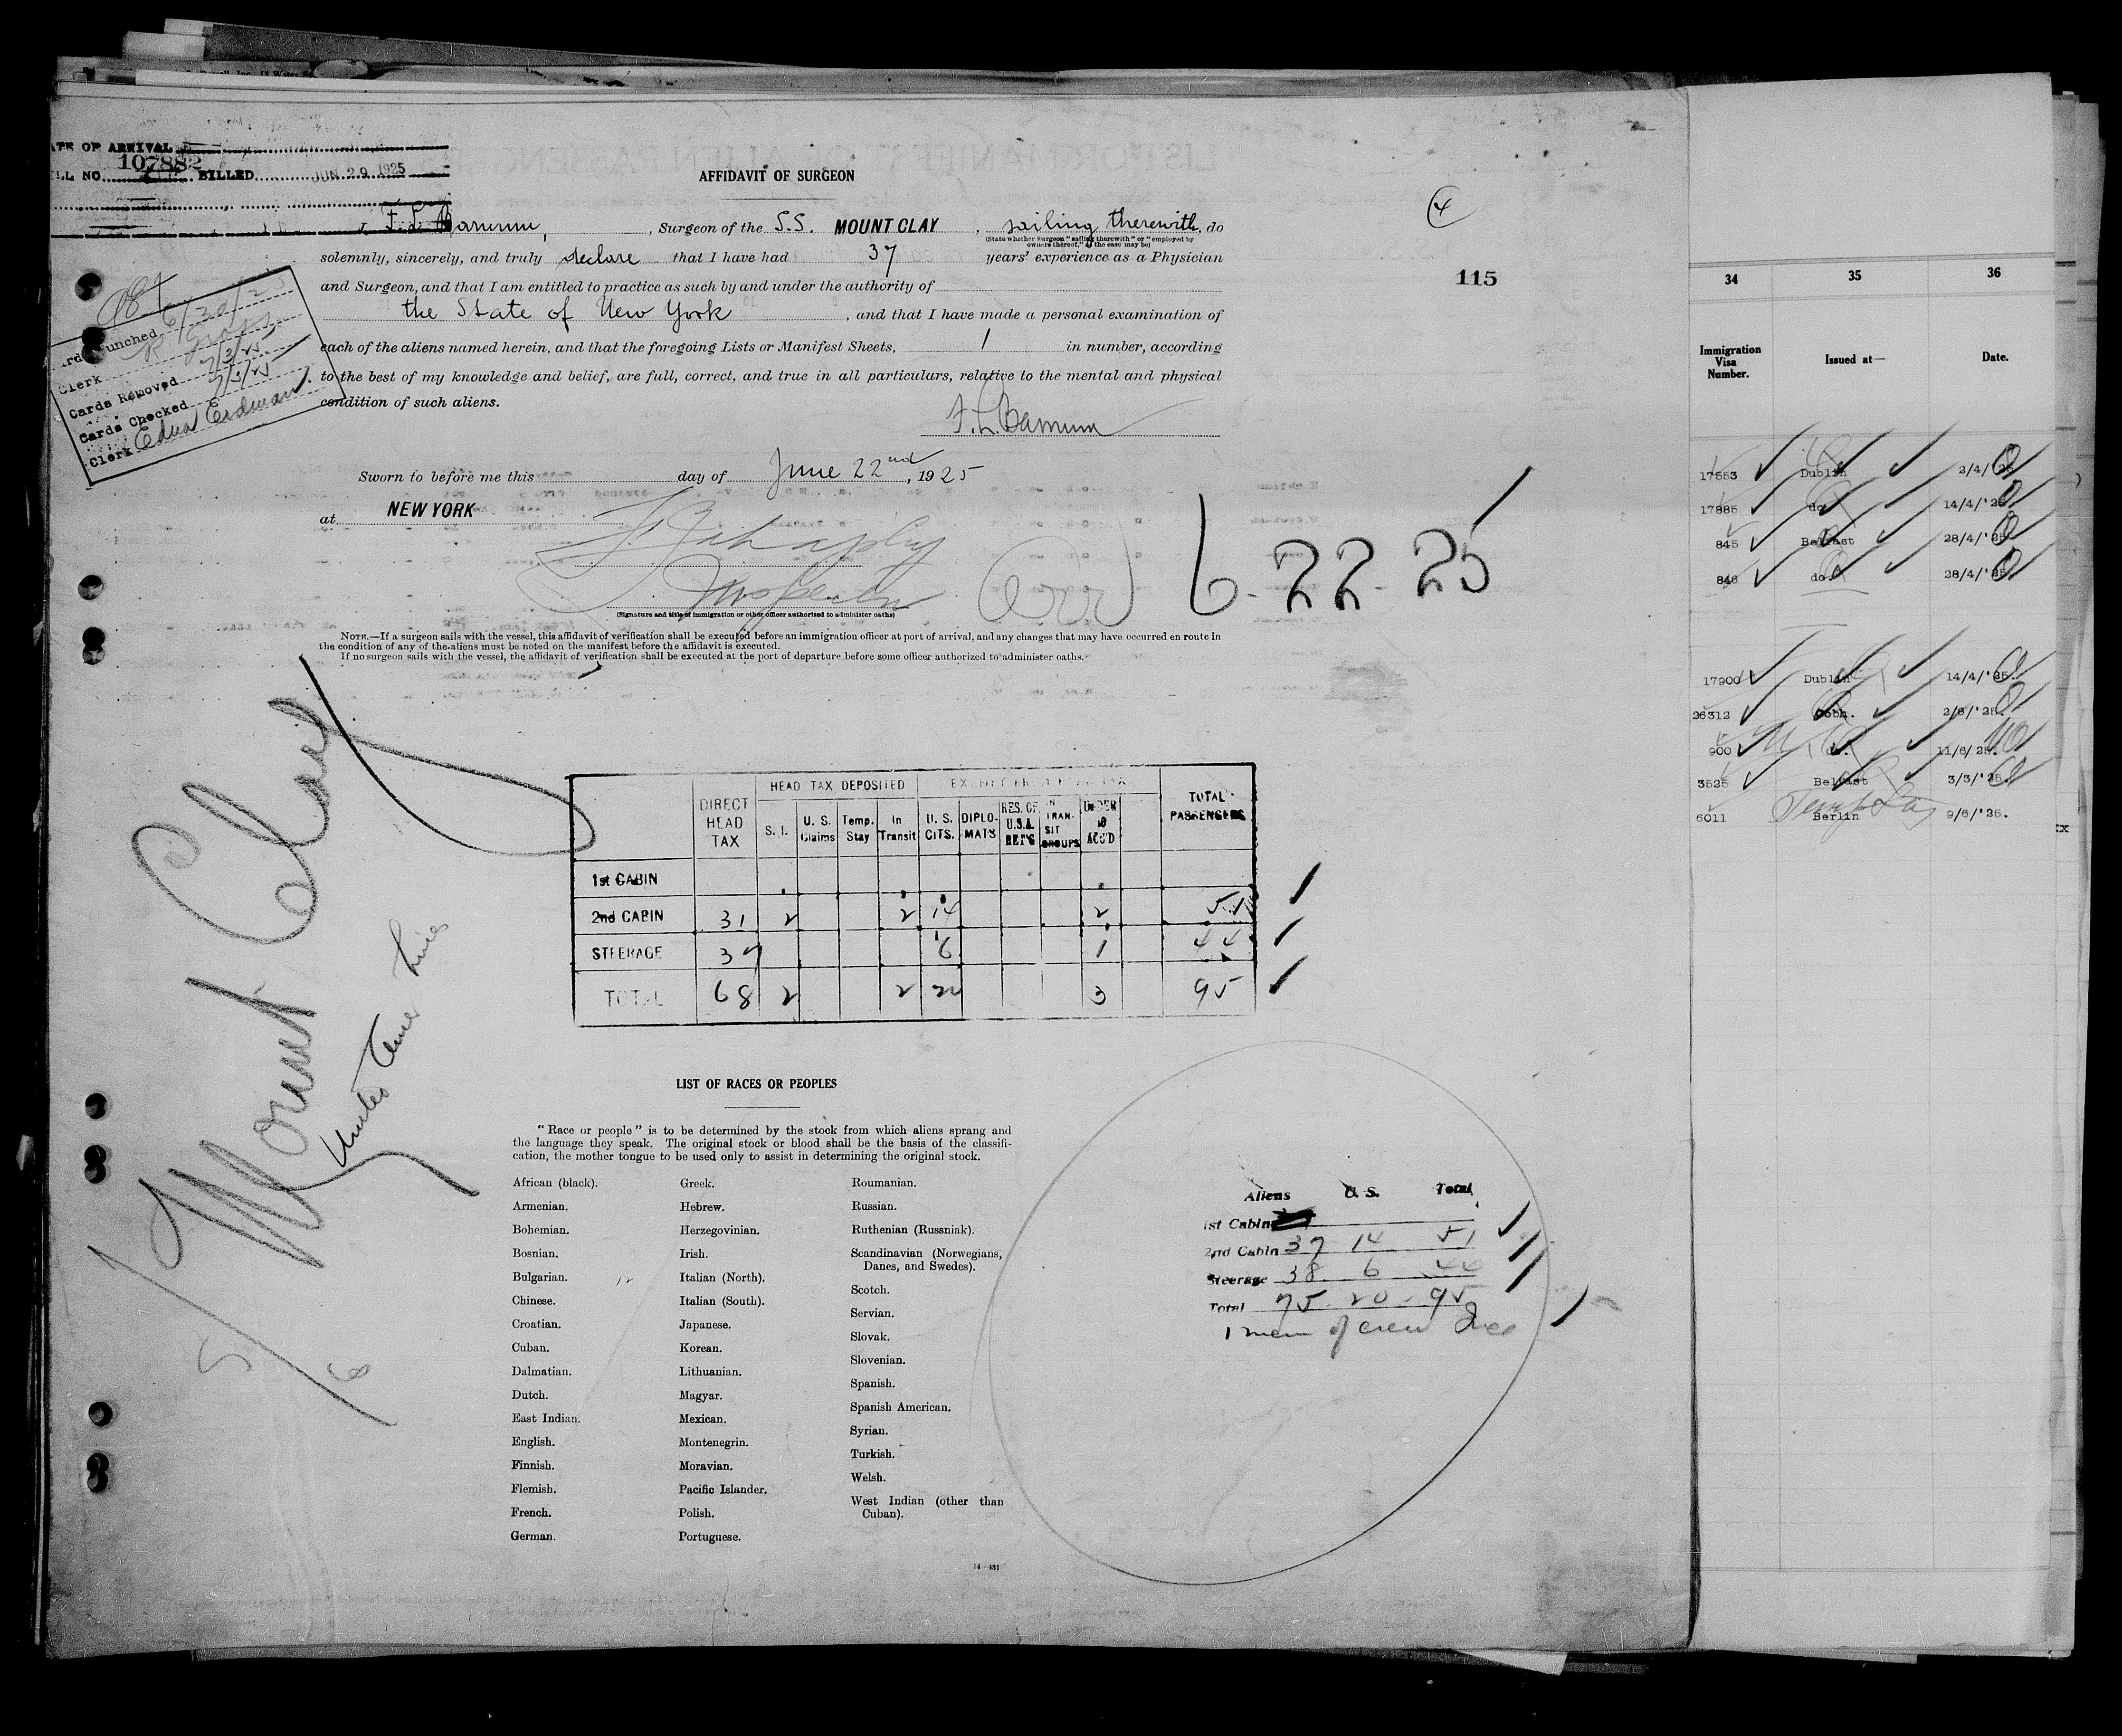 DATE OF ARRIVAL
107882
BILL NO. BILLED JUN 29 1925
AFFIDAVIT OF SURGEON
I, F. L. Barnum, Surgeon of the S.S. MOUNT CLAY, sailing therewith, do
(State whether Surgeon "sailing therewith" or "employed by
owners thereof," as the case may be)
solemnly, sincerely, and truly declare that I have had 37 years' experience as a Physician
and Surgeon, and that I am entitled to practice as such by and under the authority of
the State of New York, and that I have made a personal examination of
each of the aliens named herein, and that the foregoing Lists or Manifest Sheets, 1 in number, according
to the best of my knowledge and belief, are full, correct, and true in all particulars, relative to the mental and physical
condition of such aliens.
F. L. Barnum
Sworn to before me this day of June 22nd, 1925
at NEW YORK
Inspector
(Signature and title of immigration or other officer authorized to administer oaths)
NOTE.—If a surgeon sails with the vessel, this affidavit of verification shall be executed before an immigration officer at port of arrival, and any changes that may have occurred en route in
the condition of any of the aliens must be noted on the manifest before the affidavit is executed.
If no surgeon sails with the vessel, the affidavit of verification shall be executed at the port of departure before some officer authorized to administer oaths.
4
115
Cards Punched 6/30/25
Clerk
Cards Removed 7/3/25
Cards Checked 7/3/25
Clerk Edna Erdman
Arr 6-22-25
Mount Clay
United Amer Lines
5/6
DIRECT HEAD TAX
HEAD TAX DEPOSITED
EXEMPT FROM HEAD TAX
TOTAL PASSENGERS
S. I. U. S. Claims Temp. Stay In Transit U. S. CITS. DIPLO-MATS RES. OF U.S.A. RET'G IN TRAN-SIT GROUPS UNDER 16 ACC'D
1st CABIN
2nd CABIN 31 2 2 14 2 51
STEERAGE 37 6 1 44
TOTAL 68 2 2 20 3 95
LIST OF RACES OR PEOPLES
"Race or people" is to be determined by the stock from which aliens sprang and
the language they speak. The original stock or blood shall be the basis of the classifi-
cation, the mother tongue to be used only to assist in determining the original stock.
African (black).
Armenian.
Bohemian.
Bosnian.
Bulgarian.
Chinese.
Croatian.
Cuban.
Dalmatian.
Dutch.
East Indian.
English.
Finnish.
Flemish.
French.
German.
Greek.
Hebrew.
Herzegovinian.
Irish.
Italian (North).
Italian (South).
Japanese.
Korean.
Lithuanian.
Magyar.
Mexican.
Montenegrin.
Moravian.
Pacific Islander.
Polish.
Portuguese.
Roumanian.
Russian.
Ruthenian (Russniak).
Scandinavian (Norwegians,
Danes, and Swedes).
Scotch.
Servian.
Slovak.
Slovenian.
Spanish.
Spanish American.
Syrian.
Turkish.
Welsh.
West Indian (other than
Cuban).
14—431
Aliens U. S. Total
1st Cabin
2nd Cabin 37 14 51
Steerage 38 6 44
Total 75 20 95
1 mem of crew
34 35 36
Immigration Visa Number. Issued at— Date.
17553 Dublin 2/4/'25
17885 do. 14/4/'25
845 Belfast 28/4/'25
846 do. 28/4/'25
17900 Dublin 14/4/'25.
26312 Cobh. 2/6/'25.
900 do. 11/6/25.
3525 Belfast 3/3/'25.
6011 Berlin 9/6/'25.